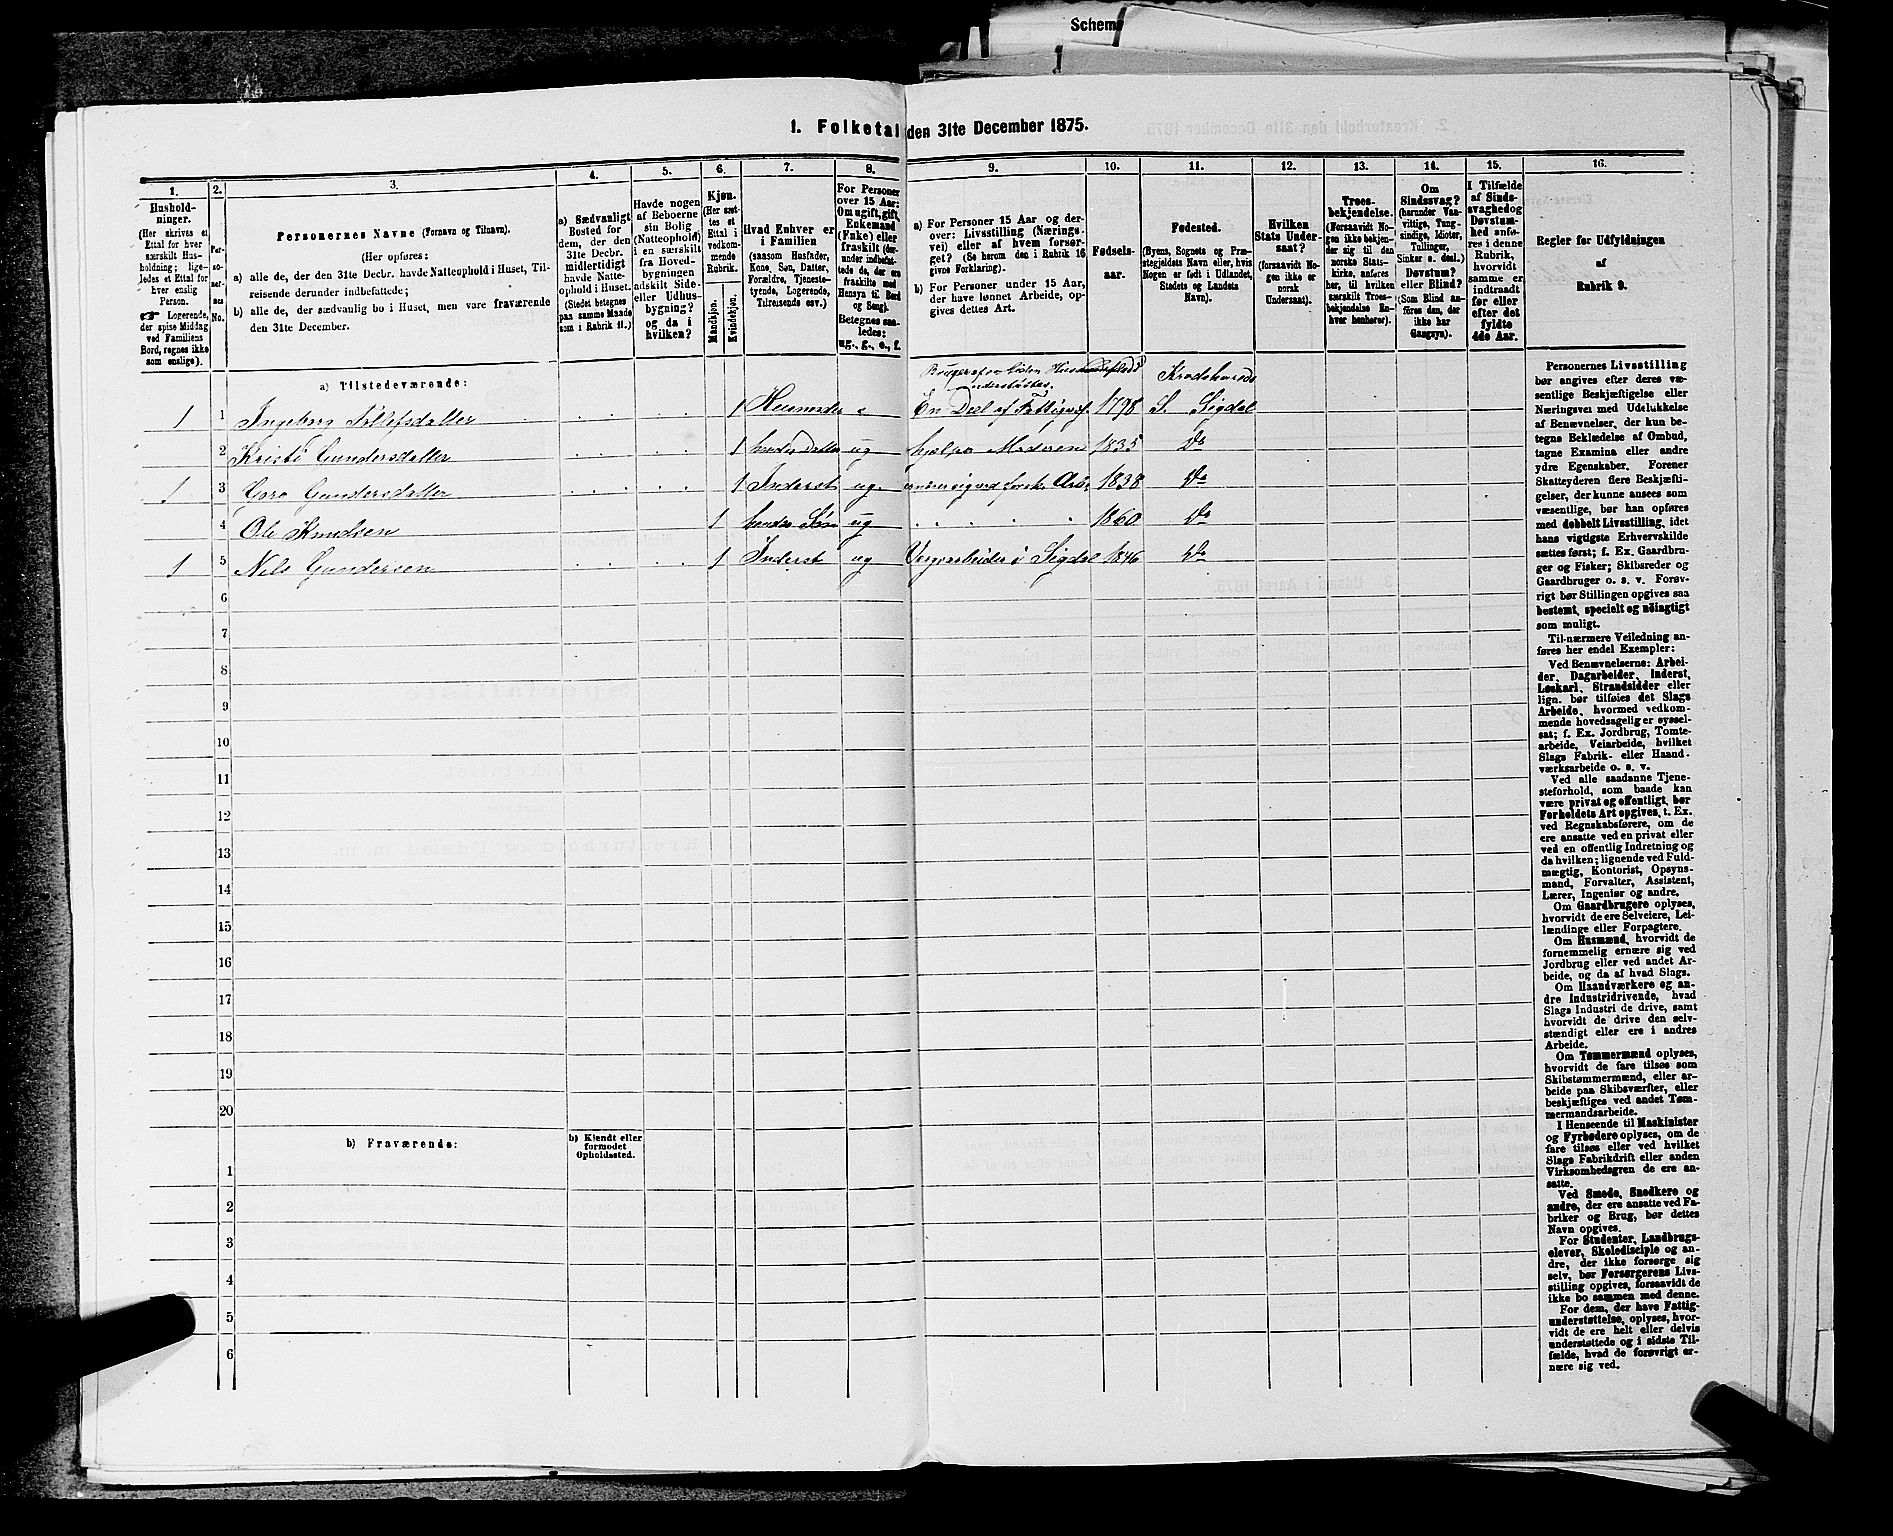 Schem
1. Folketal den 31te December 1875.
1.
2.
3.
4.
5.
6.
7.
8.
9.
10.
11.
12.
13.
14.
15.
16.
Hushold-
ninger.
(Her skrives et
Ettal for hver
særskilt Hus-
holdning; lige-
ledes et Ettal for
hver enslig
Person.
☞ Logerende,
der spise Middag
ved Familiens
Bord, regnes ikke
som enslige).
Per-
so-
ner-
nes
No.
Personernes Navne (Fornavn og Tilnavn).
(Her opføres:
a) alle de, der den 31te Decbr. havde Natteophold i Huset, Til-
reisende derunder indbefattede;
b) alle de, der sædvanlig bo i Huset, men vare fraværende
den 31te December.
a) Sædvanligt
Bosted for
dem, der den
31te Decbr.
midlertidigt
havde Natte-
ophold i Huset.
(Stedet betegnes
paa samme Maade
som i Rubrik 11.)
Havde nogen
af Beboerne
sin Bolig
(Natteophold)
i en særskilt
fra Hoved-
bygningen
adskilt Side-
eller Udhus-
bygning?
og da i
hvilken?
Kjøn.
(Her sæt-
tes et
Ettal i
vedkom-
mende
Rubrik.
Mandkjøn.
Kvindekjøn.
Hvad Enhver er
i Familien
(saasom Husfader,
Kone, Søn, Datter,
Forældre, Tjeneste-
tyende, Logerende,
Tilreisende osv.)
For Personer
over 15 Aar:
Om ugift, gift,
Enkemand
(Enke) eller
fraskilt (der-
under indbefat-
tede de, der ere
fraskilte med
Hensyn til Bord
og Seng).
Betegnes saa-
ledes:
ug., g., e., f.
a) For Personer 15 Aar og der-
over: Livsstilling (Nærings-
vei) eller af hvem forsør-
get? (Se herom den i Rubrik 16
givne Forklaring).
b) For Personer under 15 Aar,
der have lønnet Arbeide, op-
gives dettes Art.
Fødsels-
aar.
Fødested.
(Byens, Sognets og Præ-
stegjeldets Navn eller, hvis
Nogen er født i Udlandet,
Stedets og Landets
Navn).
Hvilken
Stats Under-
saat?
(forsaavidt No-
gen ikke er
norsk
Undersaat).
Troes-
bekjendelse.
(Forsaavidt No-
gen ikke bekjen-
der sig til den
norske Stats-
kirke, anføres
her, til hvilken
særskilt Troes-
bekjendelse En-
hver henhører).
Om
Sindssvag?
(herunder Van-
vittige, Tung-
sindige, Idioter,
Tullinger,
Sinker o. desl.)
Døvstum?
eller Blind?
(Som Blind an-
føres den, der
ikke har
Gangsyn).
I Tilfælde
af Sinds-
svaghed og
Døvstum-
hed anfø-
res i denne
Rubrik,
hvorvidt
samme er
indtraadt
før eller
efter det
fyldte
4de Aar.
Regler for Udfyldningen
af
Rubrik 9.
a) Tilstedeværende:
Krødsherred
1 1 Ingeborg 1 e En Deel af 1798 S. Sigdal
2 Kristi Gundersdatter 1 hendes Datter ug hjælper Moderen 1835 Do
1 3 Goro Gundersdatter 1 Inderst ug. 1838 Do
4 Ole Knudsen 1 hendes Søn ug 1860 Do
1 5 Nils Gundersen 1 Inderst ug i Sigdal 1846 Do
6
7
8
9
10
11
12
13
14
15
16
17
18
19
20
b) Fraværende:
b) Kjendt eller
formodet
Opholdssted.
1
2
3
4
5
6
Personernes Livsstilling
bør angives efter deres væ-
sentlige Beskjæftigelse eller
Næringsvei med Udelukkelse
af Benævnelser, der kun be-
tegne Beklædelse af Ombud,
tagne Examina eller andre
ydre Egenskaber. Forener
Skatteyderen flere Beskjæfti-
gelser, der kunne ansees som
væsentlige, bør han opføres
med dobbelt Livsstilling, idet
hans vigtigste Erhvervskilde
sættes først; f. Ex. Gaardbru-
ger og Fisker; Skibsreder og
Gaardbruger o. s. v. Forøv-
rigt bør Stillingen opgives saa
bestemt, specielt og nöiagtigt
som muligt.
Til nærmere Veiledning an-
føres her endel Exempler:
Ved Benævnelserne: Arbei-
der, Dagarbeider, Inderst,
Løskarl, Strandsidder eller
lign. bør tilføies det Slags
Arbeide, hvormed vedkom-
mende hovedsagelig er syssel-
sat; f. Ex. Jordbrug, Tomte-
arbeide, Veiarbeide, hvilket
Slags Fabrik- eller Haand-
værksarbeide o. s. v.
Ved alle saadanne Tjene-
steforhold, som baade kan
være privat og offentligt, bør
Forholdets Art opgives, t. Ex.
ved Regnskabsførere, om de
ere ansatte ved en privat eller
ved en offentlig Indretning og
da hvilken; lignende ved Fuld-
mægtig, Kontorist, Opsyns-
mand, Forvalter, Assistent,
Lærer, Ingeniør og andre.
Om Gaardbrugere oplyses,
hvorvidt de ere Selveiere, Lei-
lændinge eller Forpagtere.
Om Husmænd, hvorvidt de
fornemmelig ernære sig ved
Jordbrug eller ved andet Ar-
beide, og da af hvad Slags.
Om Haandværkere og an-
dre Industridrivende, hvad
Slags Industri de drive, samt
hvorvidt de drive den selv-
stændigt eller ere i andres
Arbeide.
Om Tømmermænd oplyses,
hvorvidt de fare tilsøs som
Skibstømmermænd, eller ar-
beide paa Skibsværfter, eller
beskjæftiges ved andet Tøm-
mermandsarbeide.
I Henseende til Maskinister
og Fyrbødere oplyses, om de
fare tilsøs eller ved hvilket
Slags Fabrikdrift eller anden
Virksomhedsgren de ere an-
satte.
Ved Smede, Snedkere og
andre, der ere ansatte ved Fa-
briker og Brug, bør dettes
Navn opgives.
For Studenter, Landbrugs-
elever, Skoledisciple og an-
dre, der ikke forsørge sig
selv, bør Forsørgerens Livs-
stilling opgives, forsaavidt de
ikke bo sammen med denne.
For dem, der have Fattig-
understøttelse, oplyses, hvor-
vidt de ere helt eller delvis
understøttede og i sidste Til-
fælde, hvad de forøvrigt er-
nære sig ved.